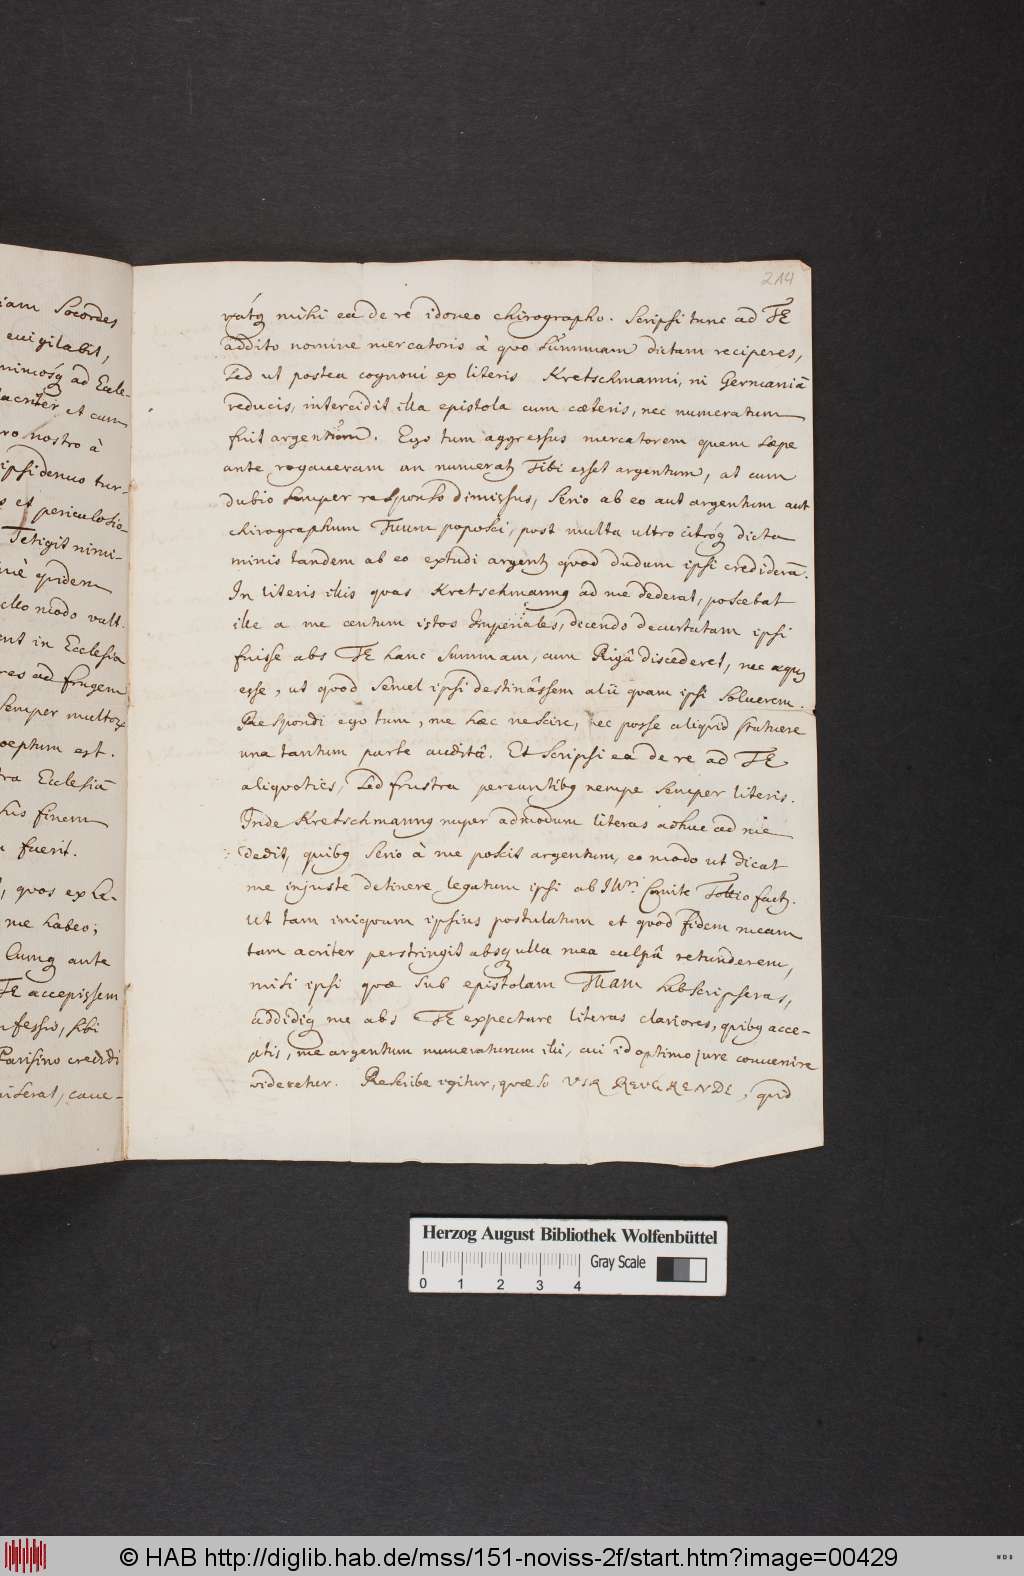 iam Socordes
evigilabit,
nimosq ad Eccle-
acriter et cum
ro nostro à
ipsi denuo tur-
s et periculosio-
Tetigit nimi-
quidem
modo vult.
ent in Ecclesia
res ad frugem
semper multor
oeptum est.
tra Ecclesiã
sus finem
fuerit.
, quos ex La-
me habeo;
Cumq ante
TE accepissem
nfessus, sibi
Parisino credidi
miserat, cave-
214
vatq mihi ea de re idoneo chirographo. Scripsi tunc ad TE
addito nomine mercatoris à quo summam dictam reciperes,
sed ut postea cognovi ex literis Kretschmanni, ni Germaniã
reducis, intercidit illa epistola cum cæteris, nec numeratum
fuit argentum. Ego tum aggressus mercatorem quem sæpe
ante rogaveram an numeratq Tibi esset argentum, at cum
dubio semper responso dimissus, serio ab eo aut argentum aut
chirographum Tuum poposci, post multa ultro citróq dicta
minis tandem ab eo extudi argentq quod dudum ipsi credideram.
In literis illis quas Kretschmannq ad me dederat, poscebat
ille a me centum istos Imperiales, dicendo decurtatam ipsi
fuisse abs TE hanc summam, cum Rigâ discederet, nec æquq
esse, ut quod semel ipsi destinâssem alii quam ipsi solverem.
Respondi ego tum, me hæc nescire, nec posse aliquid statuere
una tantum parte auditâ. Et scripsi eâ de re ad TE
aliquoties, sed frustra pereuntibq nempe semper literis.
Inde Kretschmannq nuper admodum literas adhuc ad me
dedit, quibq serio à me poscit argentum, eo modo ut dicat
me injuste detinere legatum ipsi ab Ill. Comite Tottio factq.
Ut tam iniquum ipsius postulatum et quod fidem meam
tam acriter perstringit absq ulla mea culpâ retunderem,
misi ipsi quæ sub epistolam TUAM subscripseras,
addidiq me abs TE expectare literas clariores, quibq acce-
ptis, me argentum numeraturum illi, cui id optimo jure convenire
videretur. Rescribe igitur, quæso VIR REVERENDE, quid
Herzog August Bibliothek Wolfenbüttel
0 1 2 3 4
Gray Scale
© HAB http://diglib.hab.de/mss/151-noviss-2f/start.htm?image=00429